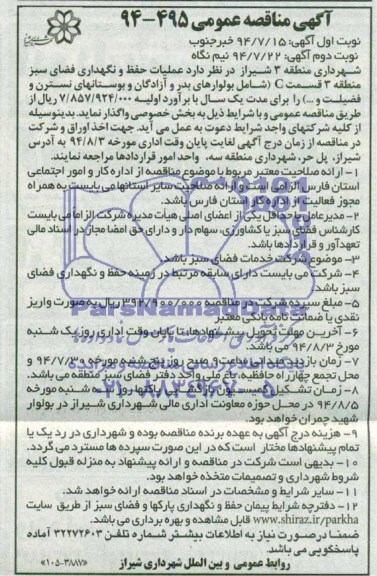 آگهی مناقصه عمومی ۴۹۵-۹۴
نوبت اول آگهی: ۹۴/۷/۱۵ خبرجنوب
نوبت دوم آگهی: ۹۴/۷/۲۲ نیم نگاه
شهرداری منطقه ۳ شیراز در نظر دارد عملیات حفظ و نگهداری فضای سبز
منطقه ۳ قسمت C (شامل بولوارهای بدر و آزادگان و بوستانهای نسترن و
فضیلت و ...) را برای مدت یک سال با برآورد اولیه ۷/۸۵۷/۹۲۴/۰۰۰ ریال از
طریق مناقصه عمومی و با شرایط ذیل به بخش خصوصی واگذار نماید. بدینوسیله
از کلیه شرکتهای واجد شرایط دعوت به عمل می آید. جهت اخذ اوراق و شرکت
در مناقصه از زمان درج آگهی لغایت پایان وقت اداری مورخه ۹۴/۸/۳ به آدرس
شیراز، پل حر، شهرداری منطقه سه، واحد امور قراردادها مراجعه نمایند.
۱- ارائه صلاحیت معتبر مربوط با موضوع مناقصه از اداره کار و امور اجتماعی
استان فارس الزامی است و ارائه صلاحیت سایر استانها می بایست به همراه
مجوز فعالیت از اداره کار استان فارس باشد.
۲- مدیرعامل یا حداقل یکی از اعضای اصلی هیأت مدیره شرکت الزاما می بایست
کارشناس فضای سبز یا کشاورزی، سهام دار و دارای حق امضا مجاز در اسناد مالی
تعهدآور و قراردادها باشد.
۳- موضوع شرکت خدمات فضای سبز باشد.
۴- شرکت می بایست دارای سابقه مرتبط در زمینه حفظ و نگهداری فضای
سبز باشد.
۵- مبلغ سپرده شرکت در مناقصه ۳۹۲/۹۰۰/۰۰۰ ریال به صورت واریز
نقدی یا ضمانت نامه بانکی معتبر
۶- آخرین مهلت تحویل پیشنهادها: تا پایان وقت اداری روز یک شنبه
مورخ ۹۴/۸/۳ می باشد.
۷- زمان بازدید میدانی ساعت ۹ صبح روز پنج شنبه مورخه ۹۴/۷/۳۰ و
محل تجمع چهارراه حافظیه، باغ ملی واحد دفتر فضای سبز منطقه می باشد.
۸- زمان تشکیل کمیسیون بازگشایی پاکتها روز سه شنبه مورخه
۹۴/۸/۵ در محل حوزه معاونت اداری مالی شهرداری شیراز در بولوار
شهید چمران خواهد بود.
۹- هزینه درج آگهی به عهده برنده مناقصه بوده و شهرداری در رد یک یا
تمام پیشنهادها مختار است که در این صورت سپرده ها مسترد می گردد.
۱۰- بدیهی است شرکت در مناقصه و ارائه پیشنهاد به منزله قبول کلیه
شروط شهرداری و تصمیمات متخذه خواهد بود.
۱۱- سایر شرایط و مشخصات در اسناد مناقصه ارائه خواهد شد.
۱۲- دفترچه شرایط پیمان حفظ و نگهداری پارکها و فضای سبز از طریق سایت
www.shiraz.ir/parkha قابل مشاهده و بهره برداری می باشد.
ضمنا در صورت نیاز به اطلاعات بیشتر شماره تلفن ۳۲۲۷۲۶۰۳ آماده
پاسخگویی می باشد.
روابط عمومی و بین الملل شهرداری شیراز
«۱۰۵-۳۸۸۷»
ParsNamadData
۰۲۱-۸۸۳۴۹۶۷۰